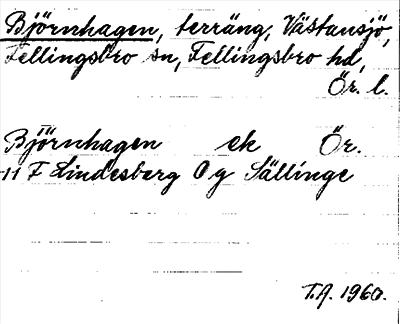 Björnhagen, terräng, Västansjö,
Fellingsbro sn, Fellingsbro hd,
Ör. l.
Björnhagen ek Ör.
11 F Lindesberg Og Sällinge
T.A. 1960.